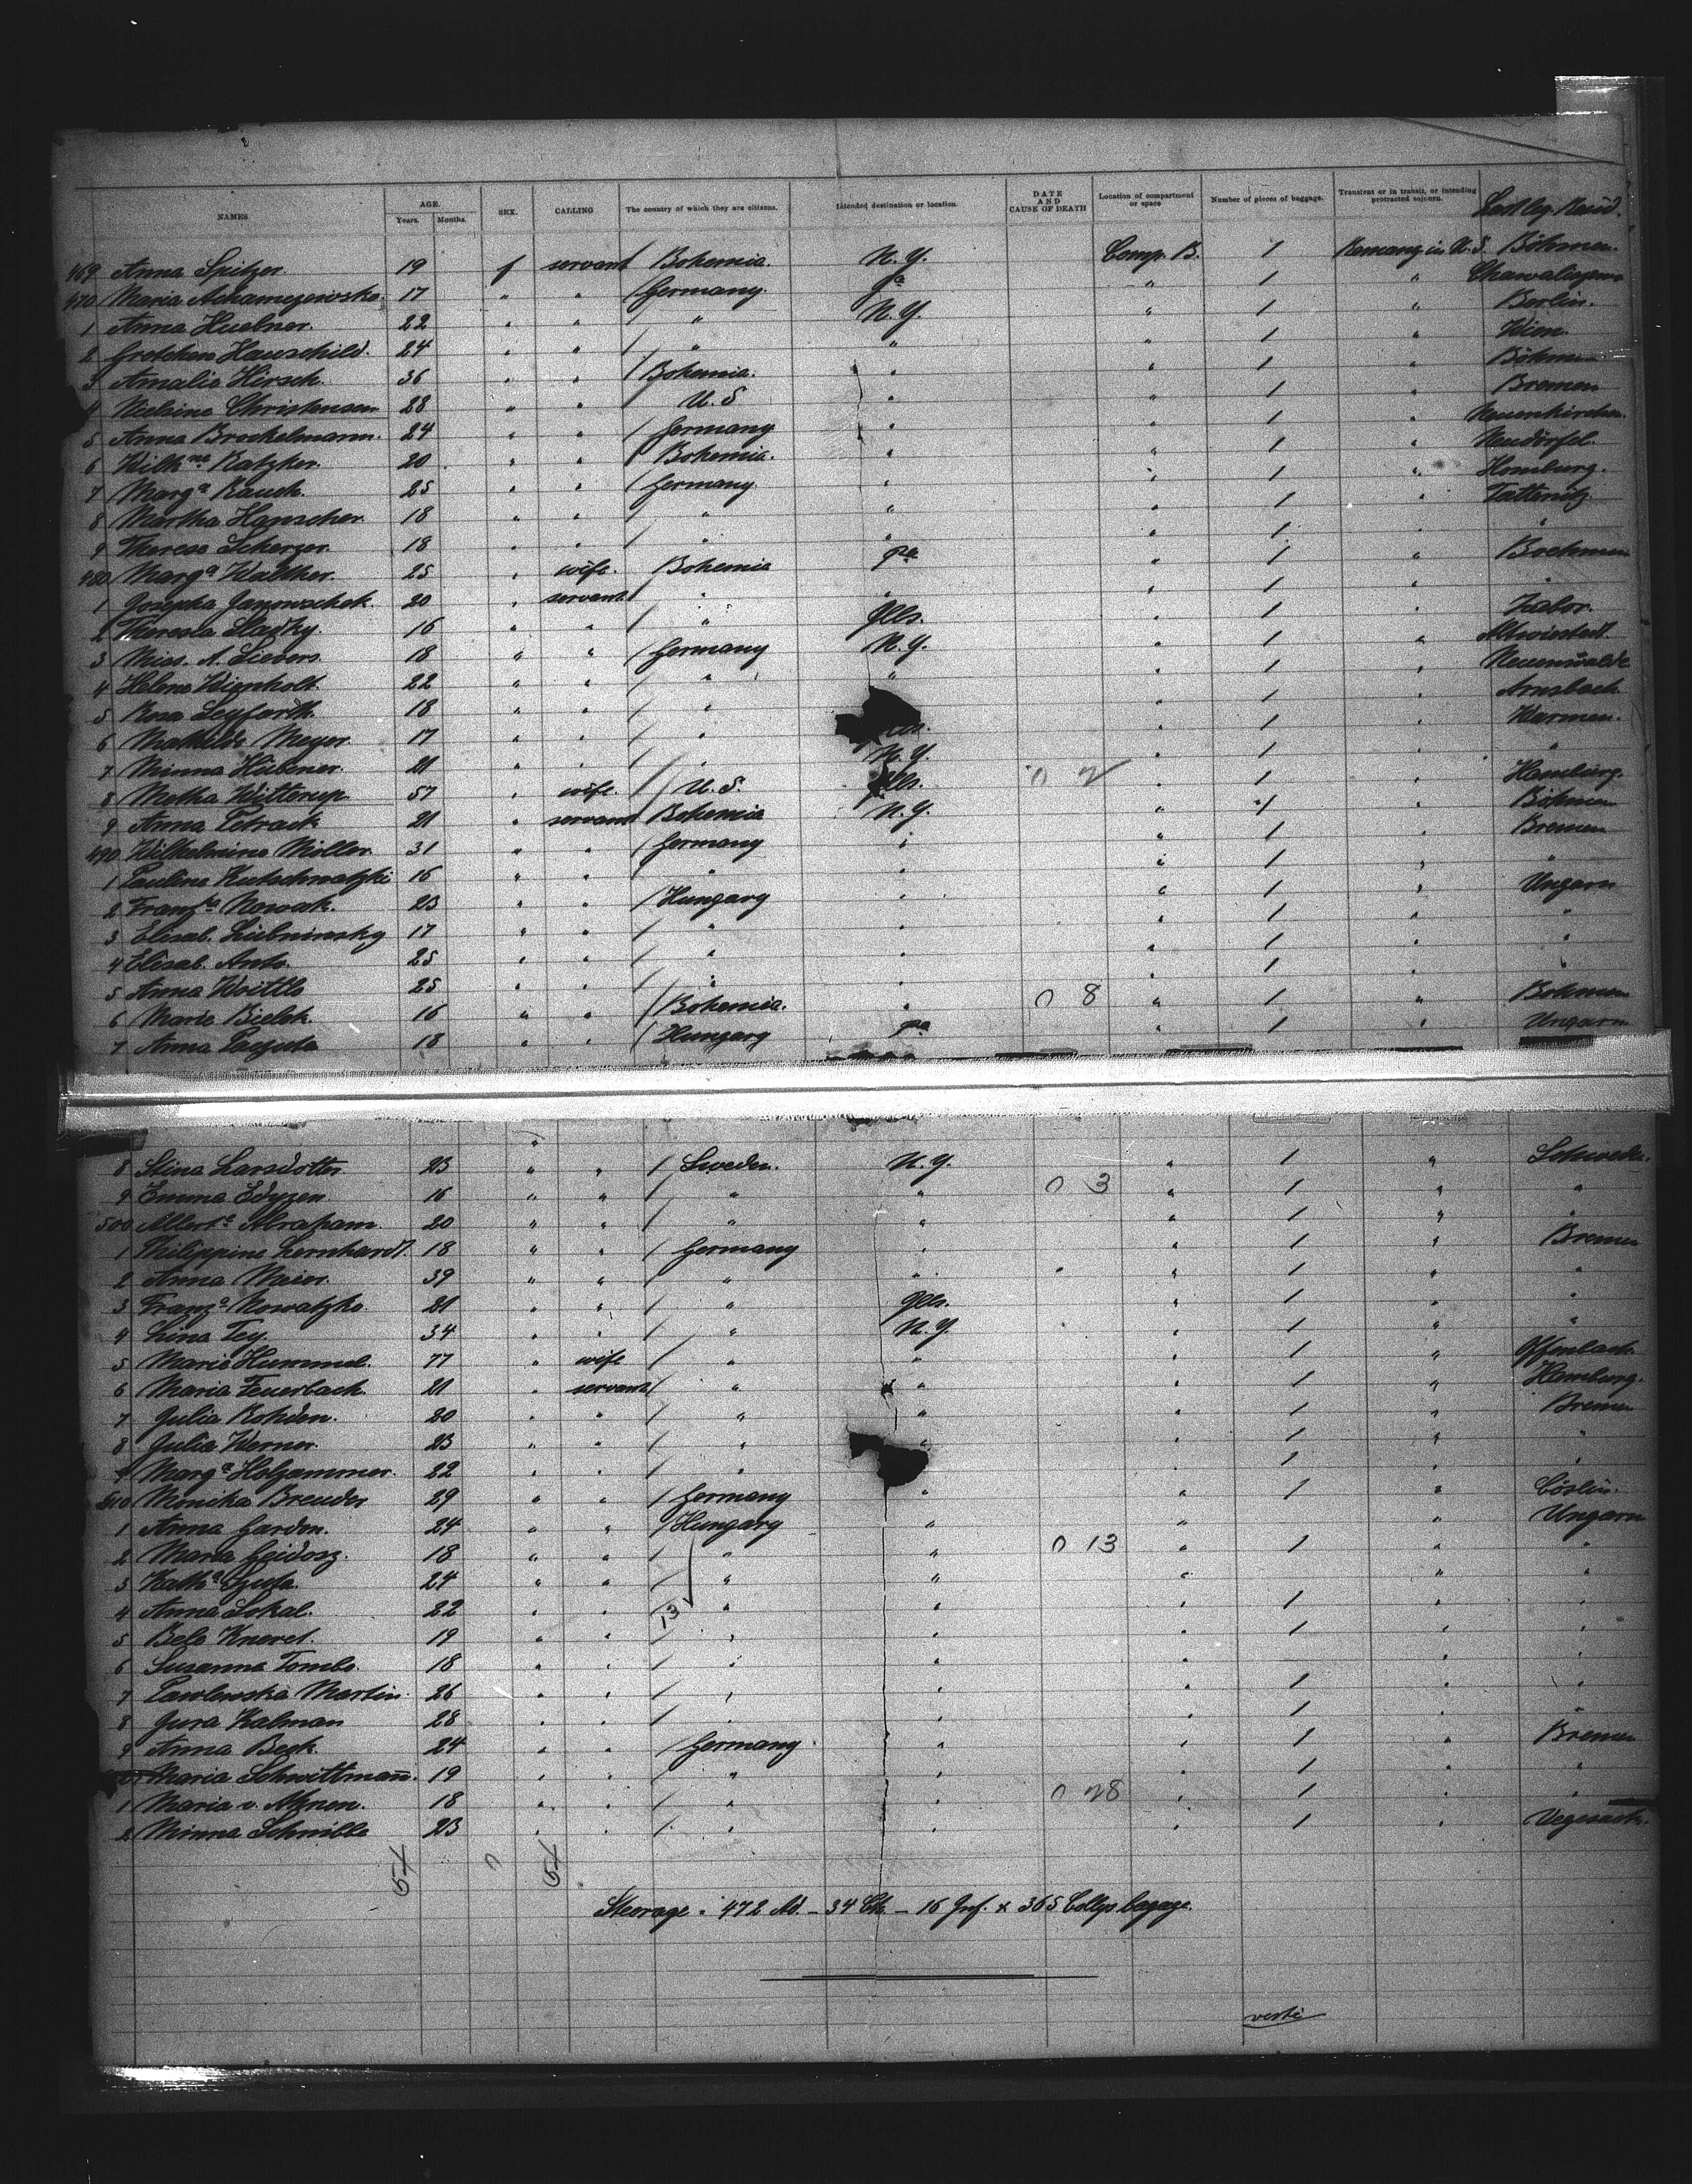 NAMES AGE. Years. Months. SEX. CALLING The country of which they are citizens. Intended destination or location. DATE AND CAUSE OF DEATH Location of compartment or space Number of pieces of baggage. Transient or in transit, or intending protracted sojourn.
469 Anna Spitzer. 19 f servant Bohemia. N.Y. Comp. B. 1 Böhmen
470 Maria 17 " " / Germany. " 1 "
1 Anna Huebner. 22 " " / " N.Y. " 1 " Berlin.
2 Gretchen Hauschild. 24 " " / " " " 1 " Wien.
3 Amalie Hirsch. 36 " " / Bohemia. " " 1 " Böhmen
4 Nielsine Christensen 28 " " U.S " " 1 " Bremen
5 Anna Brockelmann. 24 " " / Germany " " 1 " Neuenkirchen.
6 Wilhne Katzker. 20 " " / Bohemia. " " 1 " Neudörfel.
7 Marga Rauch. 25 " " / Germany " " 1 " Homburg.
8 Martha Hanscher. 18 " " / " " " 1 " Tattenitz
9 Therese Scherzer. 18 " " / " " " 1 " "
480 Marga Walther. 25 " wife. Bohemia pa " 1 " Boehmen
1 Josepha Janowschek. 20 " servant / " " " 1 " "
2 Theresia Sladky. 16 " " / " Ills. " 1 " Zabor.
3 Miss. A. Sievers. 18 " " / Germany N.Y. " 1 "
4 Helene Wienholt. 22 " " / " " " 1 " Neuenwalde
5 Rosa Seyfarth. 18 " " / " " 1 " Arnsbach
6 Mathilde Meyer. 17 " " / " " 1 " Warmen.
7 Minna Hübner. 21 " " / " N.Y. " 1 " "
8 Metha Witterup 57 " wife. / U.S. Ills. 0 2 " 1 " Hamburg.
9 Anna Petrack 21 " servant Bohemia N.Y. " 1 " Böhmen
490 Wilhelmine Möller. 31 " " / Germany " " 1 " Bremen
1 Pauline Kutschwatzki 16 " " / " " " 1 " "
2 Franzka Nowak. 23 " " / Hungary " " 1 " Ungarn
3 Elisab. Liebninsky 17 " " / " " " 1 " "
4 Elisab. Anto. 25 " " / " " " 1 " "
5 Anna Woittla 25 " " / " " " 1 " "
6 Marie Bielek 16 " " / Bohemia. " 0 8 " 1 " Bohmen
7 Anna 18 " " / Hungary pa " 1 " Ungarn
8 Stina Larsdotter 23 " " / Sweden. N.Y. " 1 " Schweden.
9 Emma Edyzen 16 " " / " " 0 3 " 1 " "
500 Alberta Abraham. 20 " " / " " " 1 " "
1 Philippine Lernhardt. 18 " " / Germany " " 1 " Bremen
2 Anna Meier. 39 " " / " " " 1 " "
3 Franza Nowatzko. 21 " " / " Ills. " 1 " "
4 Lina Tey. 34 " " / " N.Y. " 1 " "
5 Marie Hummel. 77 " wife / " " " 1 " Offenbach.
6 Maria Feuerbach. 21 " servant / " " " 1 " Hamburg.
7 Julia Rohden. 20 " " / " " " 1 " Bremen
8 Julia Werner. 23 " " / " " " 1 " "
9 Marga Holzammer. 22 " " / " 1 " "
510 Monika Breuder 29 " " / Germany " " 1 " Cöslin.
1 Anna Gardon. 24 " " / Hungary " " " Ungarn
2 Maria Geidosz. 18 " " / " " 0 13 " 1 " "
3 Katha Szuta. 24 " " / " " " " "
4 Anna Sokal. 22 " " 13 " " " 1 " "
5 Bela Kneret. 19 " " / " " " 1 " "
6 Susanna Tombo. 18 " " / " " " " "
7 Pawlewska Martin. 26 " " / " " " 1 " "
8 Jura Kalman 28 " " / " " " 1 " "
9 Anna Beck. 24 " " / Germany " " 1 " Bremen
Maria Schwittmann. 19 " " / " " " 1 " "
1 Maria v. Ahnen. 18 " " / " " 0 28 " 1 " "
2 Minna Schnibbe 23 " " / " " " 1 " Vegesack.
54 0 54
Steerage = 472 Ad. – 34 Ch. – 16 Inf. x 365 Collys bagage.